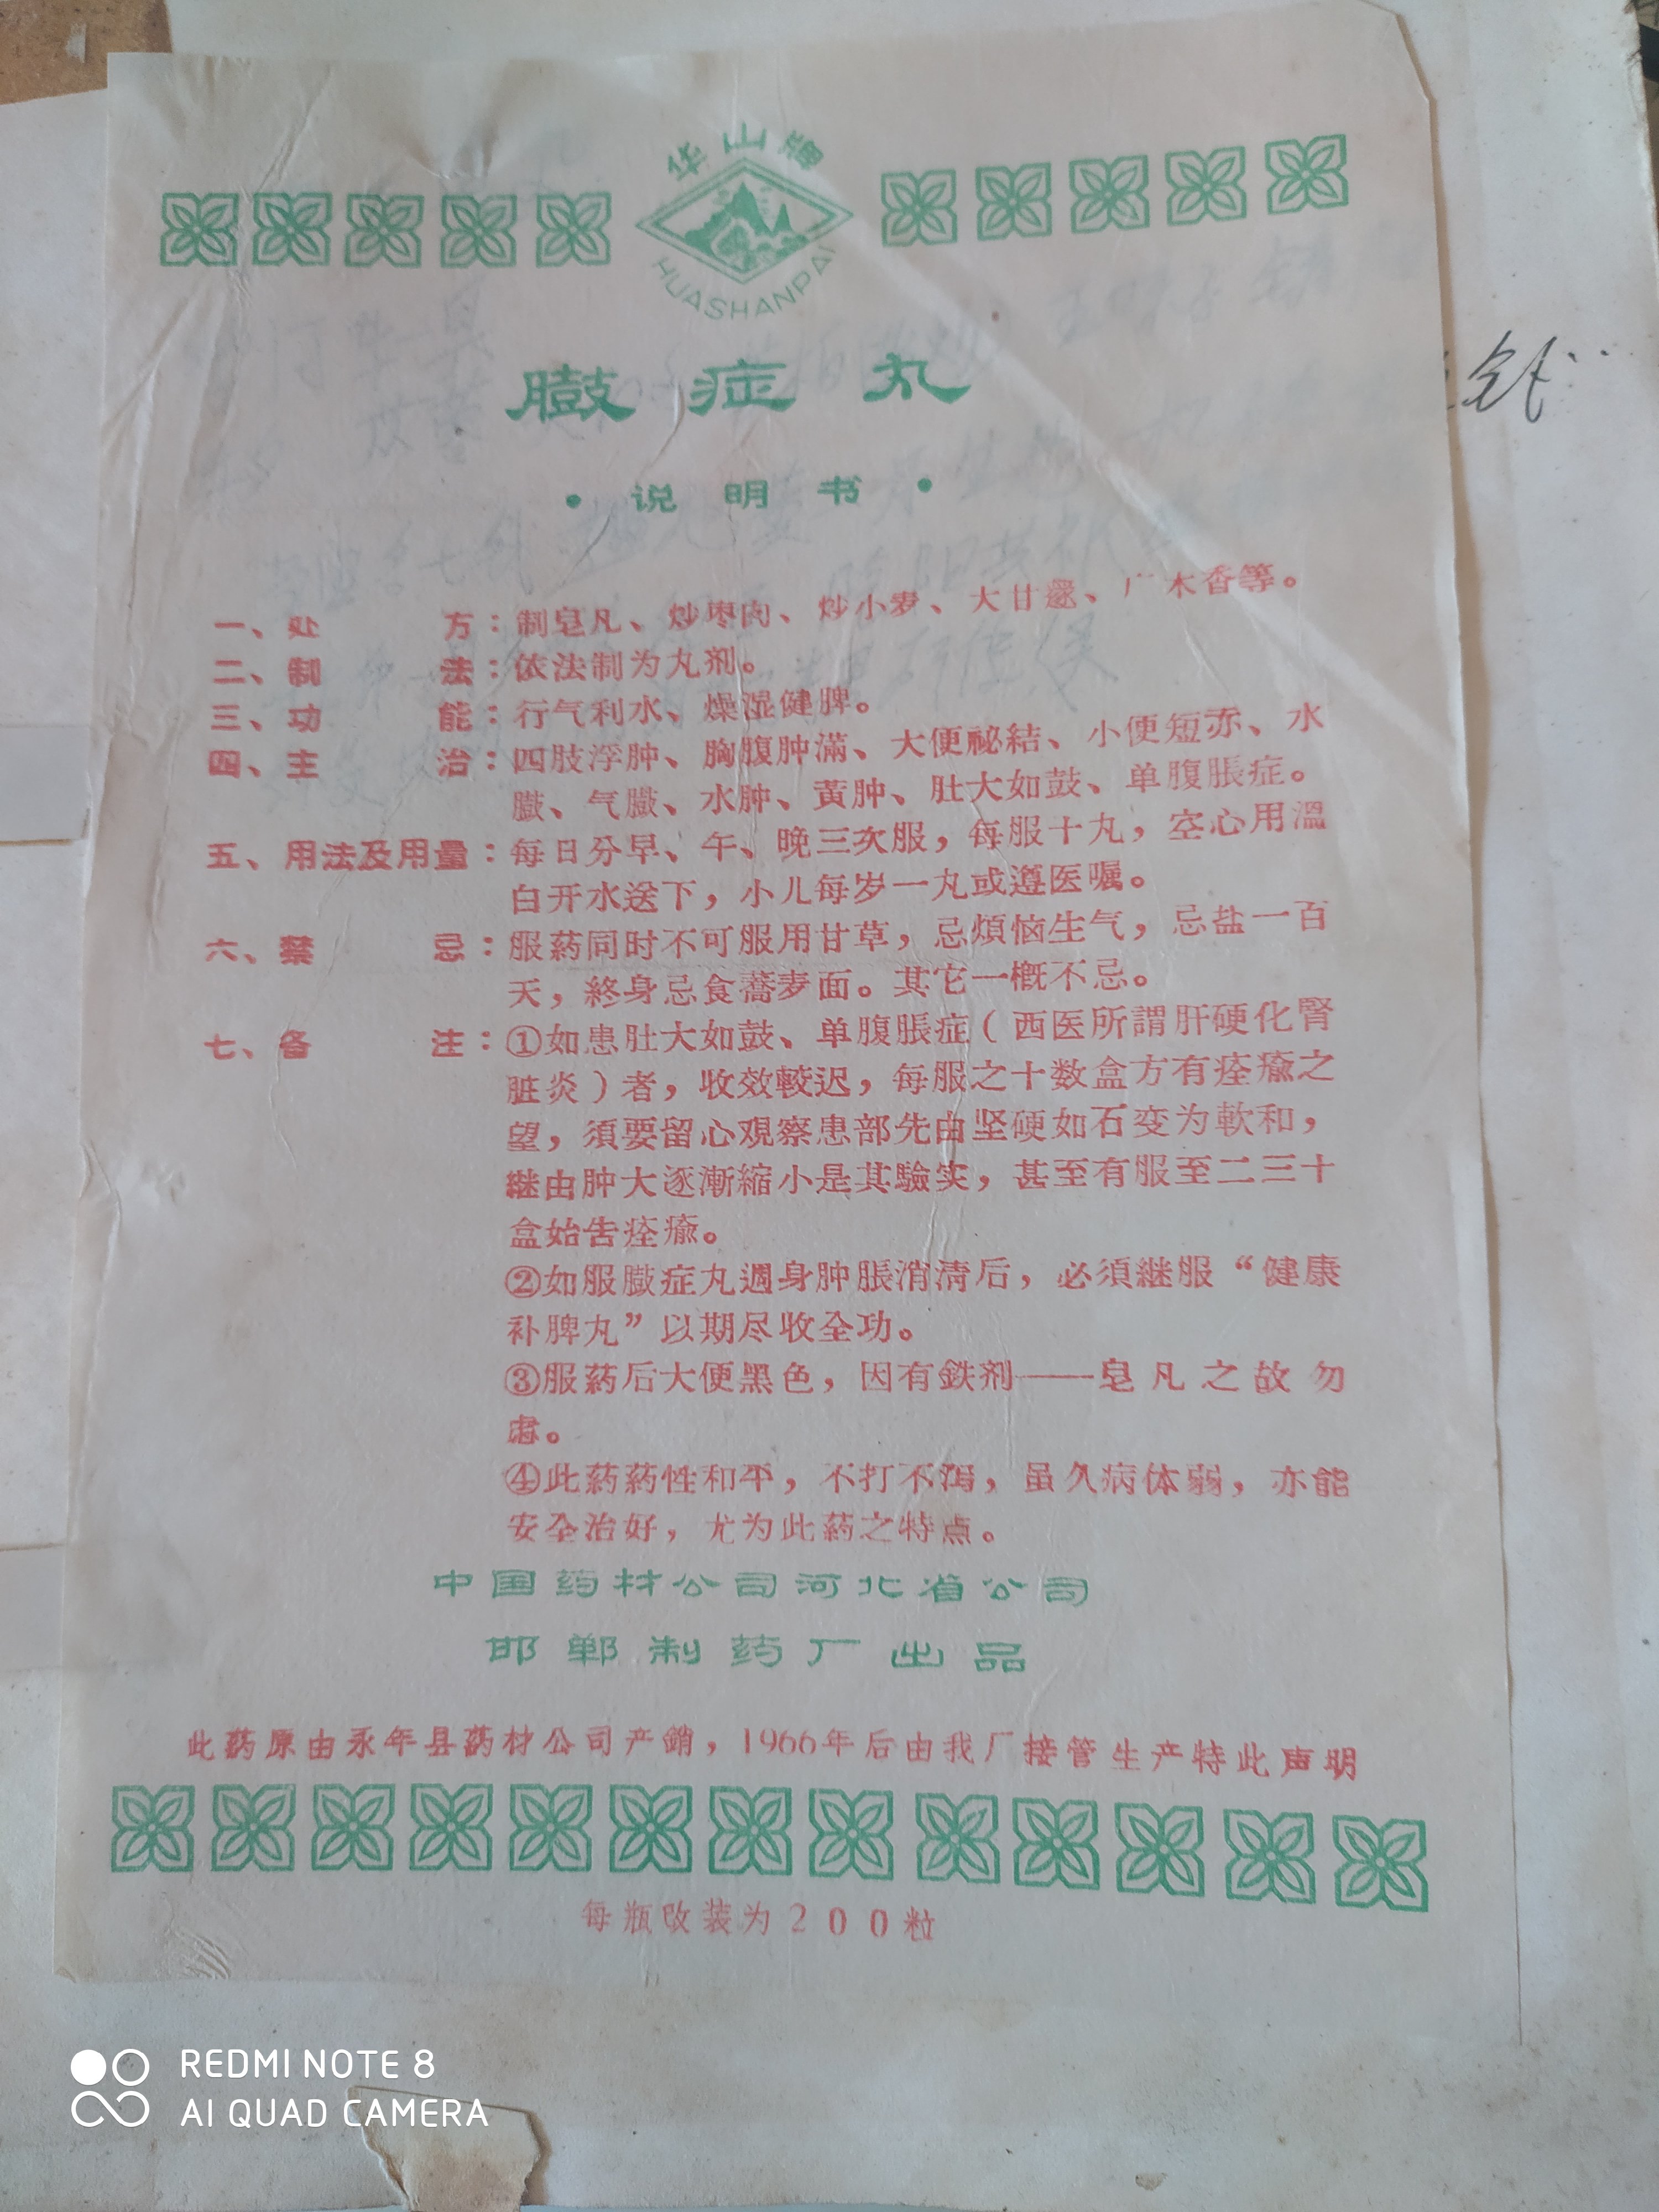 华山牌
HUASHANPAI
臌症丸
·说明书·
一、处方：制皂凡、炒枣肉、炒小麦、大甘遂、广木香等。
二、制法：依法制为丸剂。
三、功能：行气利水、燥湿健脾。
四、主治：四肢浮肿、胸腹肿满、大便祕結、小便短赤、水
臌、气臌、水肿、黄肿、肚大如鼓、单腹脹症。
五、用法及用量：每日分早、午、晚三次服，每服十丸，空心用溫
白开水送下，小儿每岁一丸或遵医嘱。
六、禁忌：服药同时不可服用甘草，忌煩恼生气，忌盐一百
天，終身忌食蕎麦面。其它一概不忌。
七、备注：①如患肚大如鼓、单腹脹症（西医所謂肝硬化腎
脏炎）者，收效較迟，每服之十数盒方有痊瘉之
望，須要留心观察患部先由坚硬如石变为軟和，
継由肿大逐漸縮小是其驗实，甚至有服至二三十
盒始告痊瘉。
②如服臌症丸週身肿脹消清后，必須継服“健康
补脾丸”以期尽收全功。
③服药后大便黑色，因有鉄剂——皂凡之故勿
虑。
④此药药性和平，不打不泻，虽久病体弱，亦能
安全治好，尤为此药之特点。
中国药材公司河北省公司
邯郸制药厂出品
此药原由永年县药材公司产銷，1966年后由我厂接管生产特此声明
每瓶改装为200粒
REDMI NOTE 8
AI QUAD CAMERA